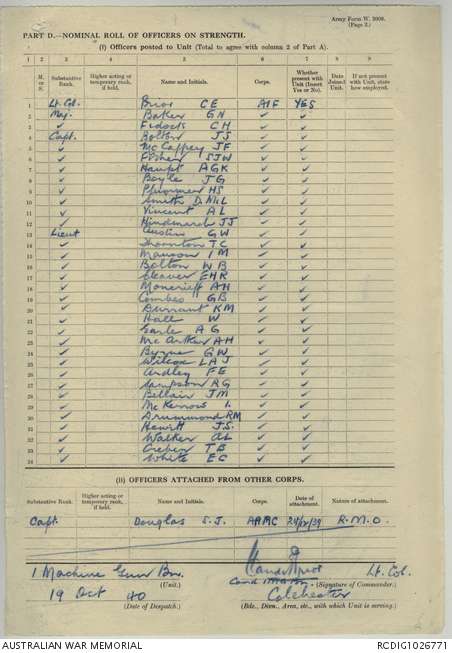 Army Form W. 3008.
(Page 3.)
PART D.—NOMINAL ROLL OF OFFICERS ON STRENGTH.
(i) Officers posted to Unit (Total to agree with column 2 of Part A).
1 2 3 4 5 6 7 8 9
M. or S. Substantive Rank. Higher acting or temporary rank, if held. Name and Initials. Corps. Whether present with Unit (Insert Yes or No). Date Joined Unit. If not present with Unit, state how employed.
1 Lt. Col. Prior CE AIF YES
2 Maj. Baker GN ✓ ✓
3 ✓ Fidock CH ✓ ✓
4 Capt. Bolton JS ✓ ✓
5 ✓ McCaffrey JF ✓ ✓
6 ✓ Fisher SJW ✓ ✓
7 ✓ Haupt AGK ✓ ✓
8 ✓ Boyle JG ✓ ✓
9 ✓ HS ✓ ✓
10 ✓ Smith D McL ✓ ✓
11 ✓ Vincent AL ✓ ✓
12 ✓ Hindmarsh JJ ✓ ✓
13 Lieut Austin GW ✓ ✓
14 ✓ Thornton TC ✓ ✓
15 ✓ IM ✓ ✓
16 ✓ Bolton WB ✓ ✓
17 ✓ Cleaver EHR ✓ ✓
18 ✓ Moncrieff AH ✓ ✓
19 ✓ Combes GB ✓ ✓
20 ✓ Durrant KM ✓ ✓
21 ✓ Hall W ✓ ✓
22 ✓ Earle AG ✓ ✓
23 ✓ McArthur AH ✓ ✓
24 ✓ Byrne GW ✓ ✓
25 ✓ Wilcox LAJ ✓ ✓
26 ✓ Ardley FE ✓ ✓
27 ✓ Sampson AG ✓ ✓
28 ✓ Bellair JM ✓ ✓
29 ✓ McKerrow I. ✓ ✓
30 ✓ Drummond RM ✓ ✓
31 ✓ Hewitt J.S. ✓ ✓
32 ✓ Walker AL ✓ ✓
33 ✓ Greber TB ✓ ✓
34 ✓ White EC ✓ ✓
(ii) OFFICERS ATTACHED FROM OTHER CORPS.
Substantive Rank. Higher acting or temporary rank, if held. Name and Initials. Corps. Date of attachment. Nature of attachment.
Capt. Douglas S.J. AAMC 24/12/39 R.M.O.
1 Machine Gun Bn. Lt. Col.
(Unit.) (Signature of Commander.)
19 Oct 40 Colchester
(Date of Despatch.) (Bde., Divn., Area, etc., with which Unit is serving.)
AUSTRALIAN WAR MEMORIAL RCDIG1026771